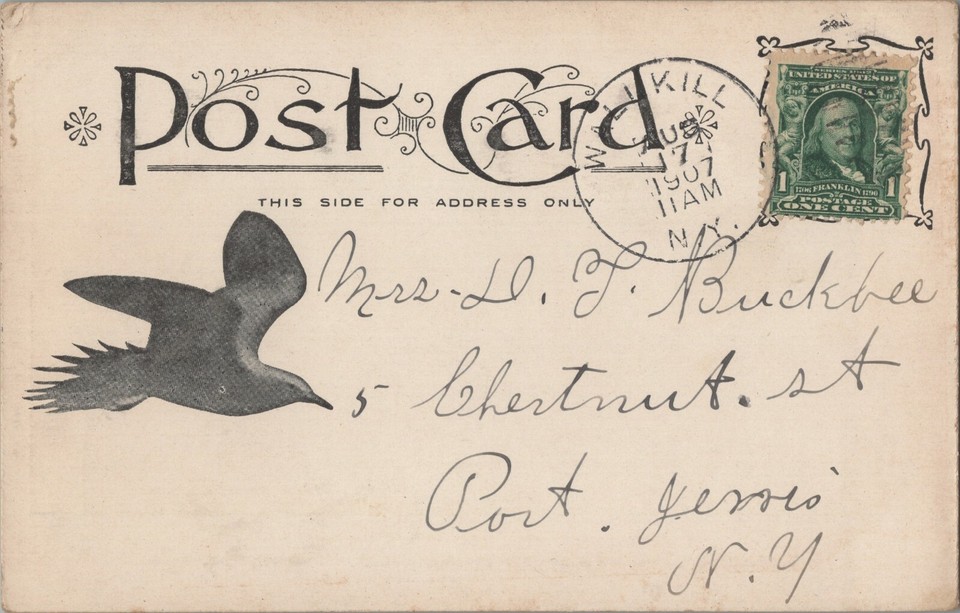 Post Card
THIS SIDE FOR ADDRESS ONLY
WALLKILL
AUG
17
1907
11 AM
N.Y.
SERIES 1902
UNITED STATES OF
AMERICA
1 1
1706 FRANKLIN 1790
POSTAGE
ONE CENT
Mrs - D. F. Buckbee
5 Chestnut. st
Port. Jervis
N.Y